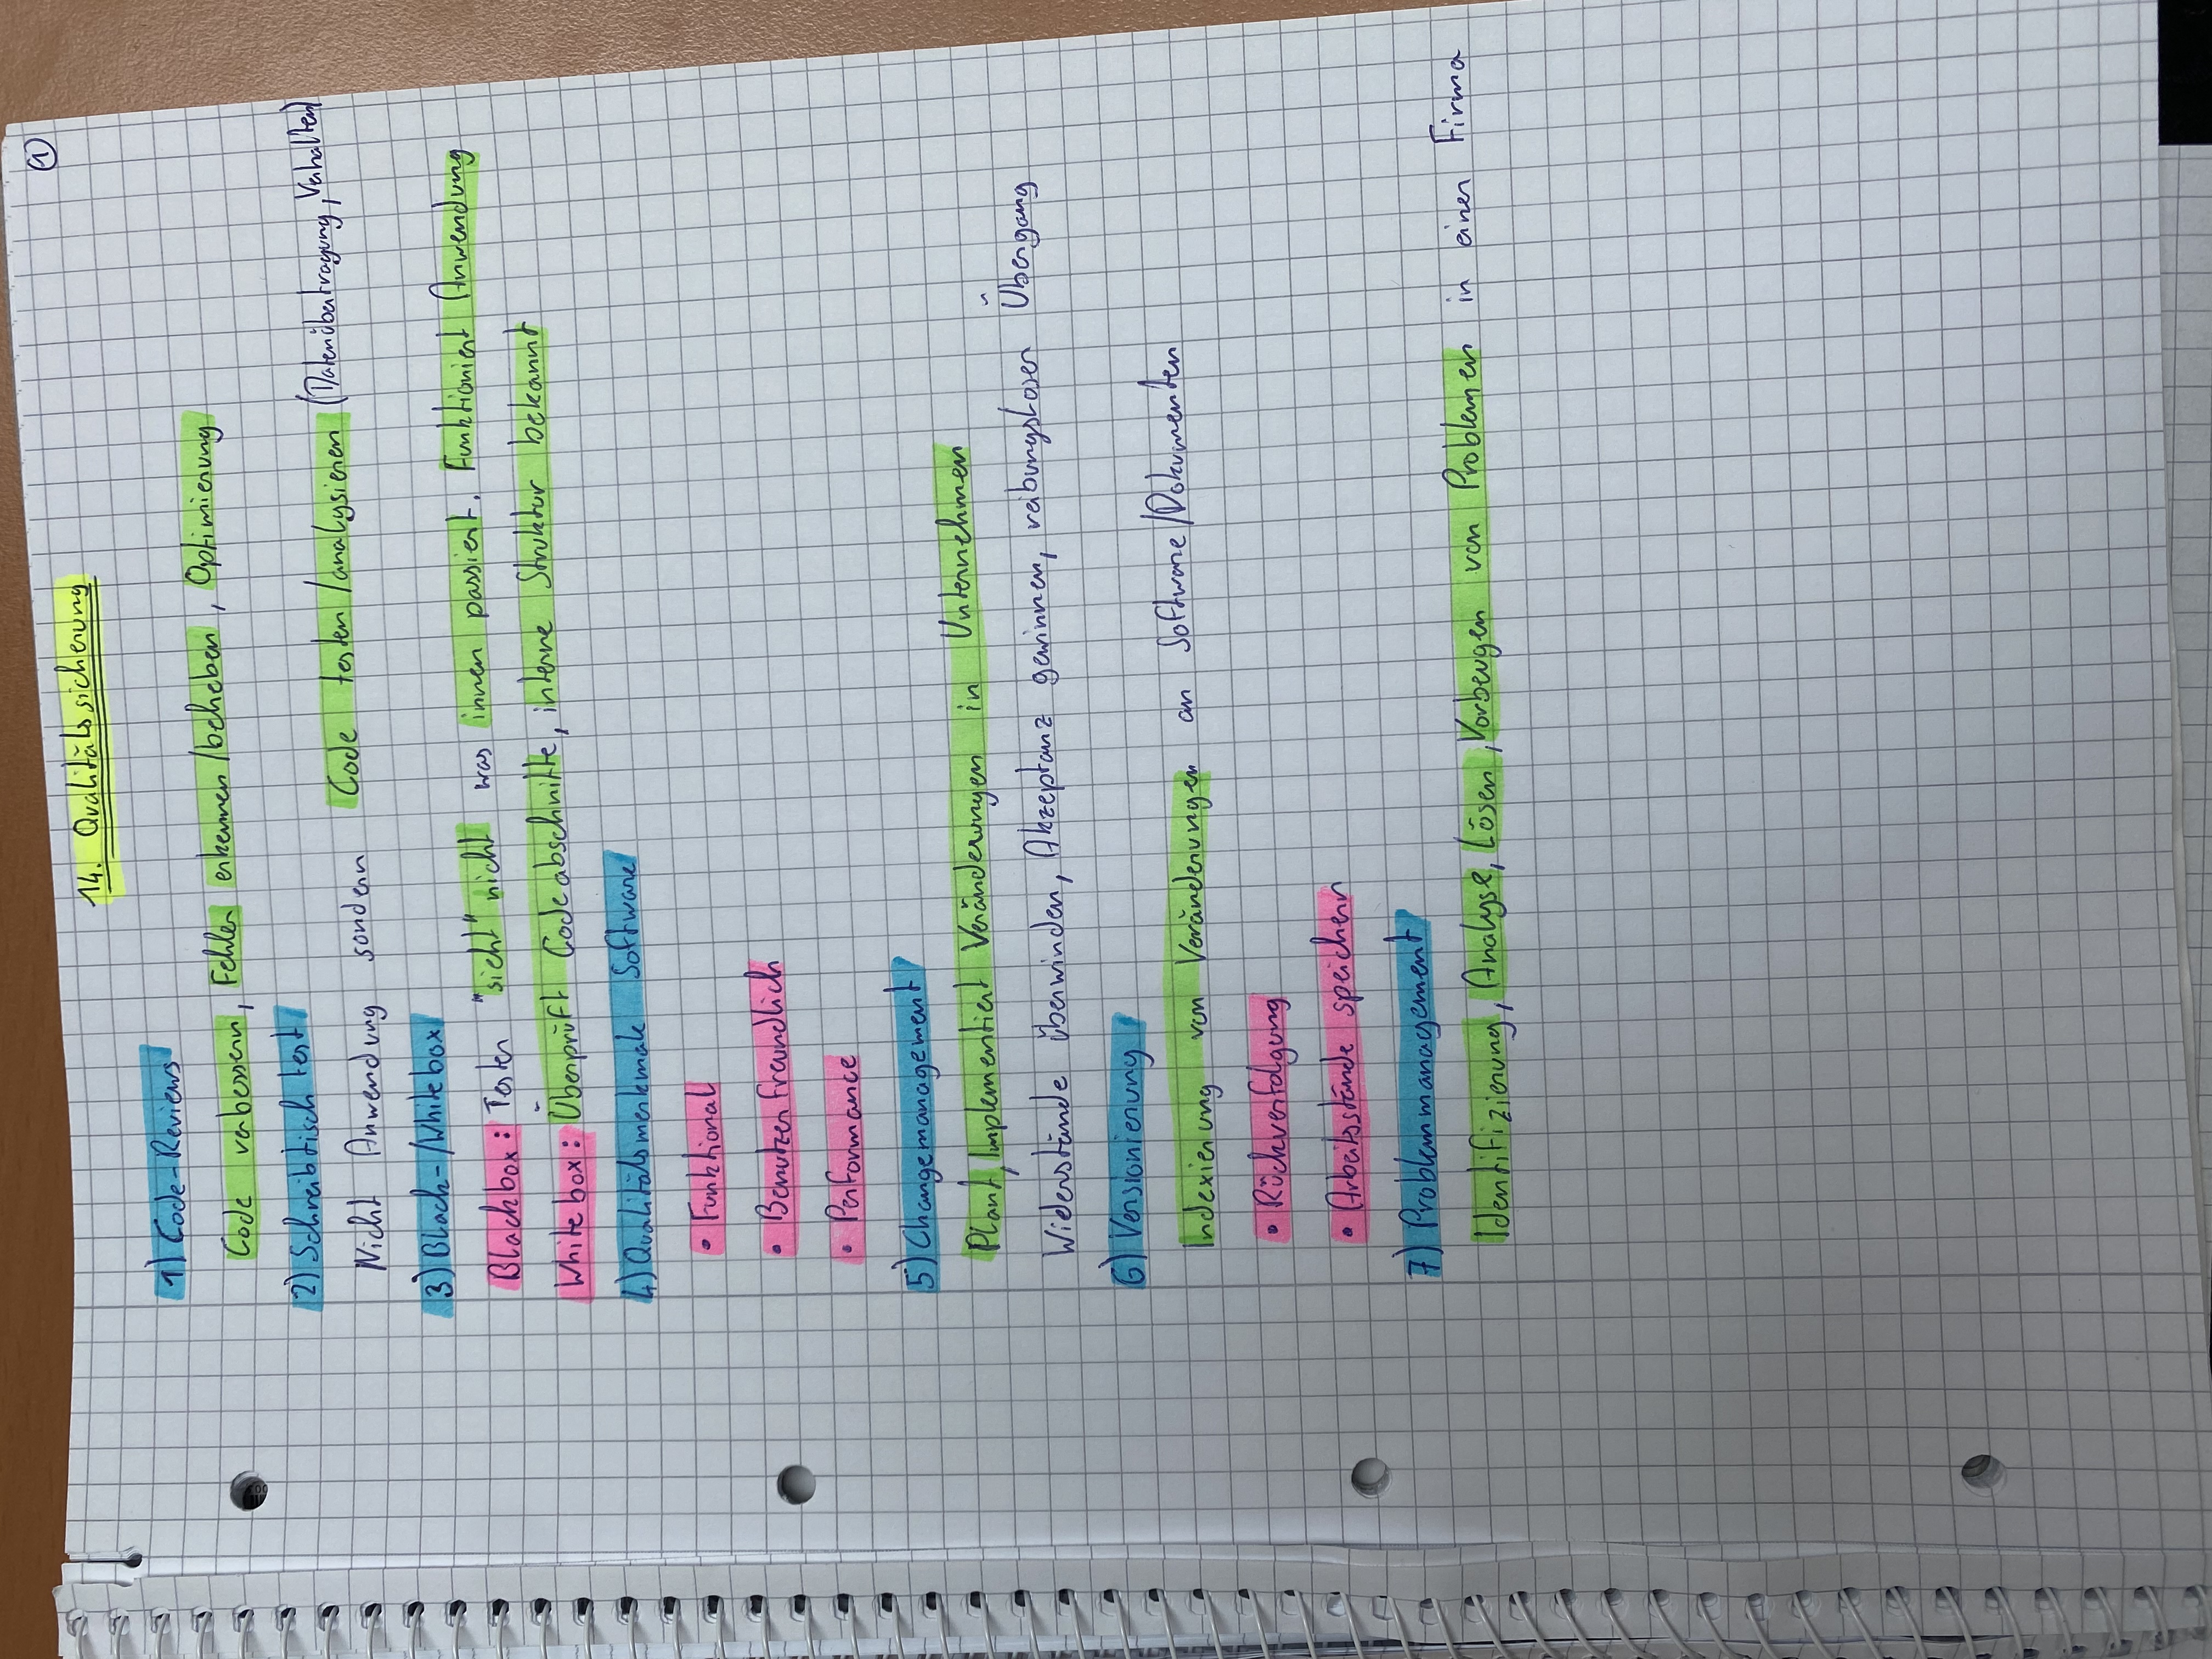 ①
14. Qualitätssicherung
1) Code-Reviews
Code verbessern, Fehler erkennen/beheben, Optimierung
2) Schreibtischtest
Nicht Anwendung sondern Code testen/analysieren (Datenübertragung, Verhalten)
3) Black-/Whitebox
Blackbox: Tester "sieht" nicht was innen passiert. Funktioniert Anwendung
Whitebox: Überprüft Codeabschnitte, interne Struktur bekannt
4) Qualitätsmerkmale Software
• Funktional
• Benutzerfreundlich
• Performance
5) Changemanagement
Plant, Implementiert Veränderungen in Unternehmen
Widerstände überwinden, Akzeptanz gewinnen, reibungsloser Übergang
6) Versionierung
Indexierung von Veränderungen an Software/Dokumenten
• Rückverfolgung
• Arbeitsstände speichern
7) Problemmanagement
Identifizierung, Analyse, Lösen, Vorbeugen von Problemen in einer Firma